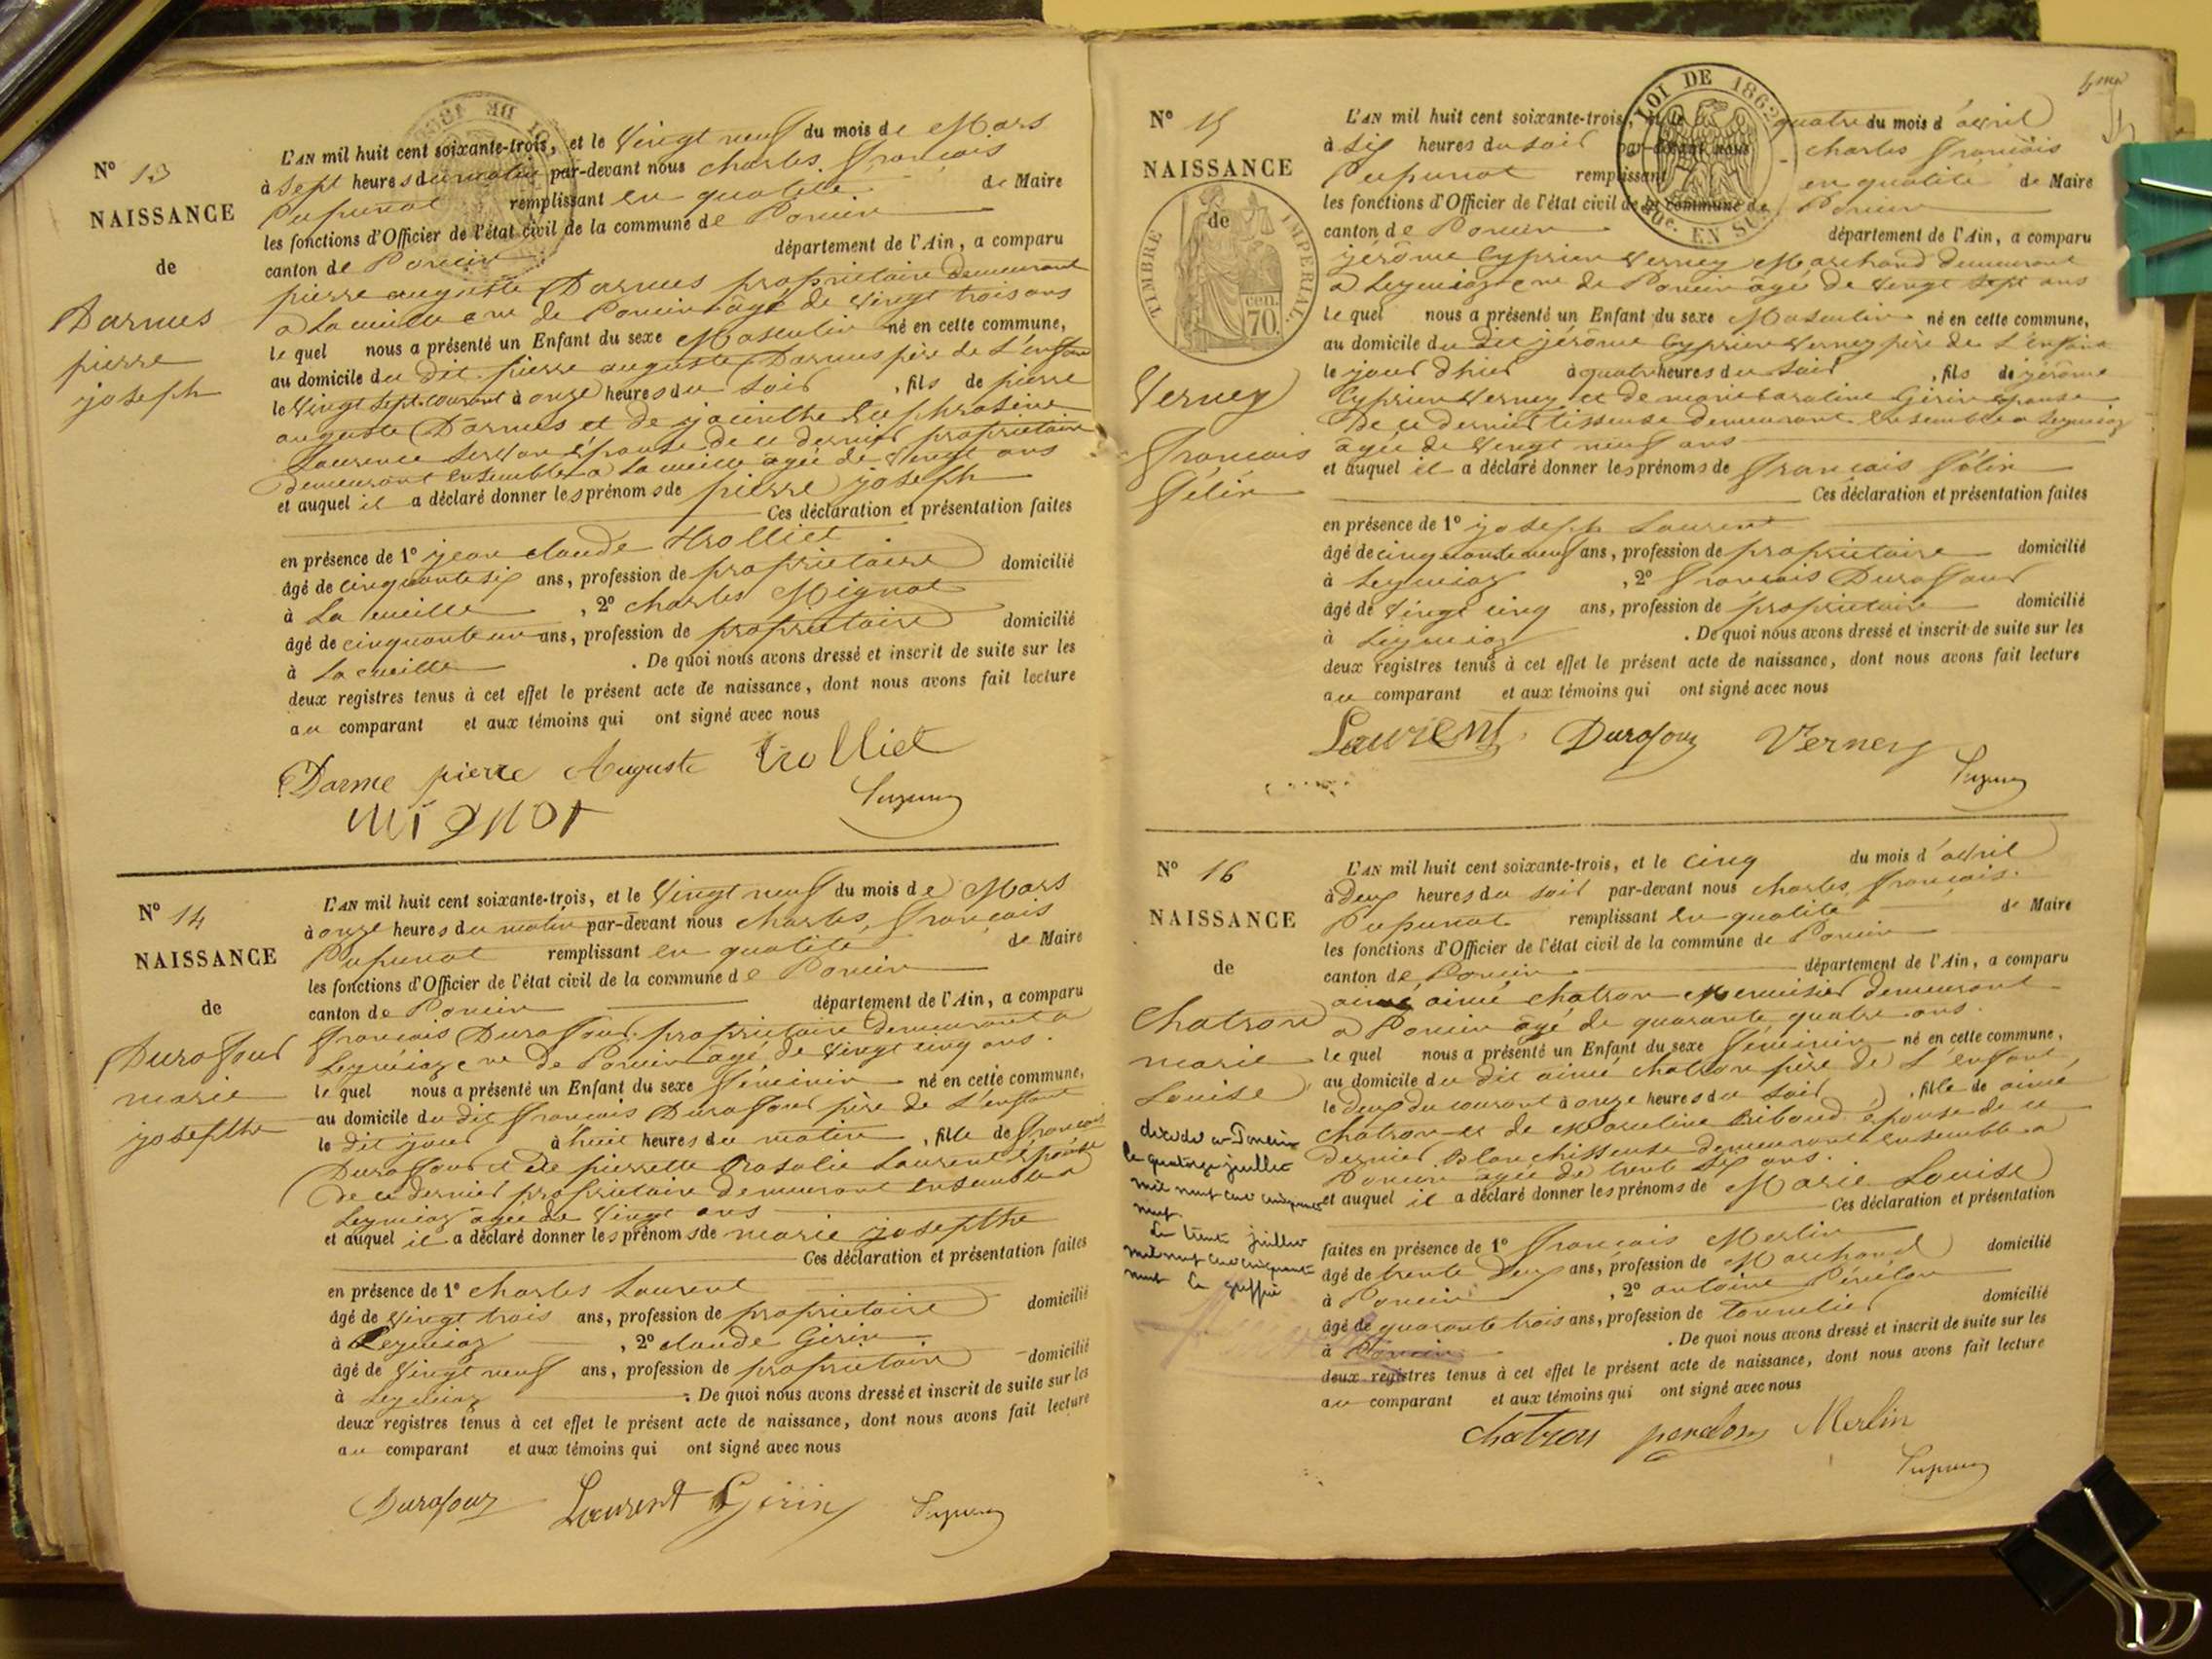 N° 13
NAISSANCE
de
Darmes
pierre
joseph
L'AN mil huit cent soixante-trois, et le Vingt neuf du mois de Mars
à sept heures du matin par-devant nous charles, françois
remplissant en qualité de Maire
les fonctions d'Officier de l'état civil de la commune de Poncin
canton de Poncin département de l'Ain, a comparu
pierre auguste Darmes propriétaire demeurant
a La cueille cne de Poncin âgé de vingt trois ans
le quel nous a présenté un Enfant du sexe Masculin né en cette commune,
au domicile du dit pierre auguste Darmes père de L'enfant
le Vingt sept courant à onze heures du soir, fils de pierre
auguste Darmes et de jacinthe Euphrosine
Laurence épouse de ce dernier propriétaire
demeurant ensemble a La cueille agée de Vingt ans
et auquel il a déclaré donner les prénoms de pierre joseph
Ces déclaration et présentation faites
en présence de 1° jean claude trolliet
âgé de cinquante six ans, profession de propriétaire domicilié
à La cueille, 2° charles Mignot
âgé de cinquante un ans, profession de propriétaire domicilié
à La cueille. De quoi nous avons dressé et inscrit de suite sur les
deux registres tenus à cet effet le présent acte de naissance, dont nous avons fait lecture
au comparant et aux témoins qui ont signé avec nous
Darme pierre Auguste trolliet
mignot
N° 14
NAISSANCE
de
Durafour
marie
josephte
L'AN mil huit cent soixante-trois, et le Vingt neuf du mois de Mars
à onze heures du matin par-devant nous charles, françois
remplissant en qualité de Maire
les fonctions d'Officier de l'état civil de la commune de Poncin
canton de Poncin département de l'Ain, a comparu
françois Durafour propriétaire demeurant a
Leymiaz cne de Poncin âgé de vingt cinq ans.
le quel nous a présenté un Enfant du sexe féminin né en cette commune,
au domicile du dit françois Durafour père de L'enfant
le dit jour à huit heures du matin, fille de françois
Durafour et de pierrette Rosalie Laurent épouse
de ce dernier propriétaire demeurant ensemble a
Leymiaz agée de Vingt ans
et auquel il a déclaré donner les prénoms de marie josephte
Ces déclaration et présentation faites
en présence de 1° charles Laurent
âgé de vingt trois ans, profession de propriétaire domicilié
à Leymiaz, 2° claude Girin
âgé de Vingt neuf ans, profession de propriétaire domicilié
à Leymiaz. De quoi nous avons dressé et inscrit de suite sur les
deux registres tenus à cet effet le présent acte de naissance, dont nous avons fait lecture
au comparant et aux témoins qui ont signé avec nous
Durafour Laurent Girin
N° 15
NAISSANCE
de
TIMBRE IMPERIAL
70 cen.
LOI DE 1862
EN SUS
Verney
françois
félix
L'AN mil huit cent soixante-trois, et le quatre du mois d'avril
à six heures du soir par-devant nous charles françois
remplissant en qualité de Maire
les fonctions d'Officier de l'état civil de la commune de Poncin
canton de Poncin département de l'Ain, a comparu
jérôme Cyprien Verney Marchand demeurant
a Leymiaz cne de Poncin âgé de vingt sept ans
le quel nous a présenté un Enfant du sexe Masculin né en cette commune,
au domicile du dit jérôme Cyprien Verney père de L'enfant
le jour d'hier à quatre heures du soir, fils de jérôme
Cyprien Verney et de marie caroline Girin épouse
De ce dernier tisseuse demeurant ensemble a Leymiaz
âgée de Vingt neuf ans
et auquel il a déclaré donner les prénoms de françois félix
Ces déclaration et présentation faites
en présence de 1° joseph Laurent
âgé de cinquante neuf ans, profession de propriétaire domicilié
à Leymiaz, 2° françois Durafour
âgé de vingt cinq ans, profession de propriétaire domicilié
à Leymiaz. De quoi nous avons dressé et inscrit de suite sur les
deux registres tenus à cet effet le présent acte de naissance, dont nous avons fait lecture
au comparant et aux témoins qui ont signé avec nous
Laurent Durafour Verney
N° 16
NAISSANCE
de
Chatron
marie
Louise
décédée a Poncin
le quatorze juillet
mil neuf cent cinquante
neuf.
Le trente juillet
mil neuf cent cinquante
neuf Le greffier
L'AN mil huit cent soixante-trois, et le cinq du mois d'avril
à Deux heures du soir par-devant nous charles, françois.
remplissant en qualité de Maire
les fonctions d'Officier de l'état civil de la commune de Poncin
canton de Poncin département de l'Ain, a comparu
aimé chatron Menuisier demeurant
a Poncin âgé de quarante quatre ans.
le quel nous a présenté un Enfant du sexe féminin né en cette commune,
au domicile du dit aimé chatron père de L'enfant,
le deux du courant à onze heures du soir, fille de aimé
chatron et de Marceline Riboud épouse de ce
dernier Blanchisseuse demeurant ensemble a
Poncin agée de trente six ans.
et auquel il a déclaré donner les prénoms de Marie Louise
Ces déclaration et présentation
faites en présence de 1° françois Merlin
âgé de trente Deux ans, profession de Marchand domicilié
à Poncin, 2° antoine
âgé de quarante trois ans, profession de tonnelier domicilié
à Poncin. De quoi nous avons dressé et inscrit de suite sur les
deux registres tenus à cet effet le présent acte de naissance, dont nous avons fait lecture
au comparant et aux témoins qui ont signé avec nous
chatron Merlin